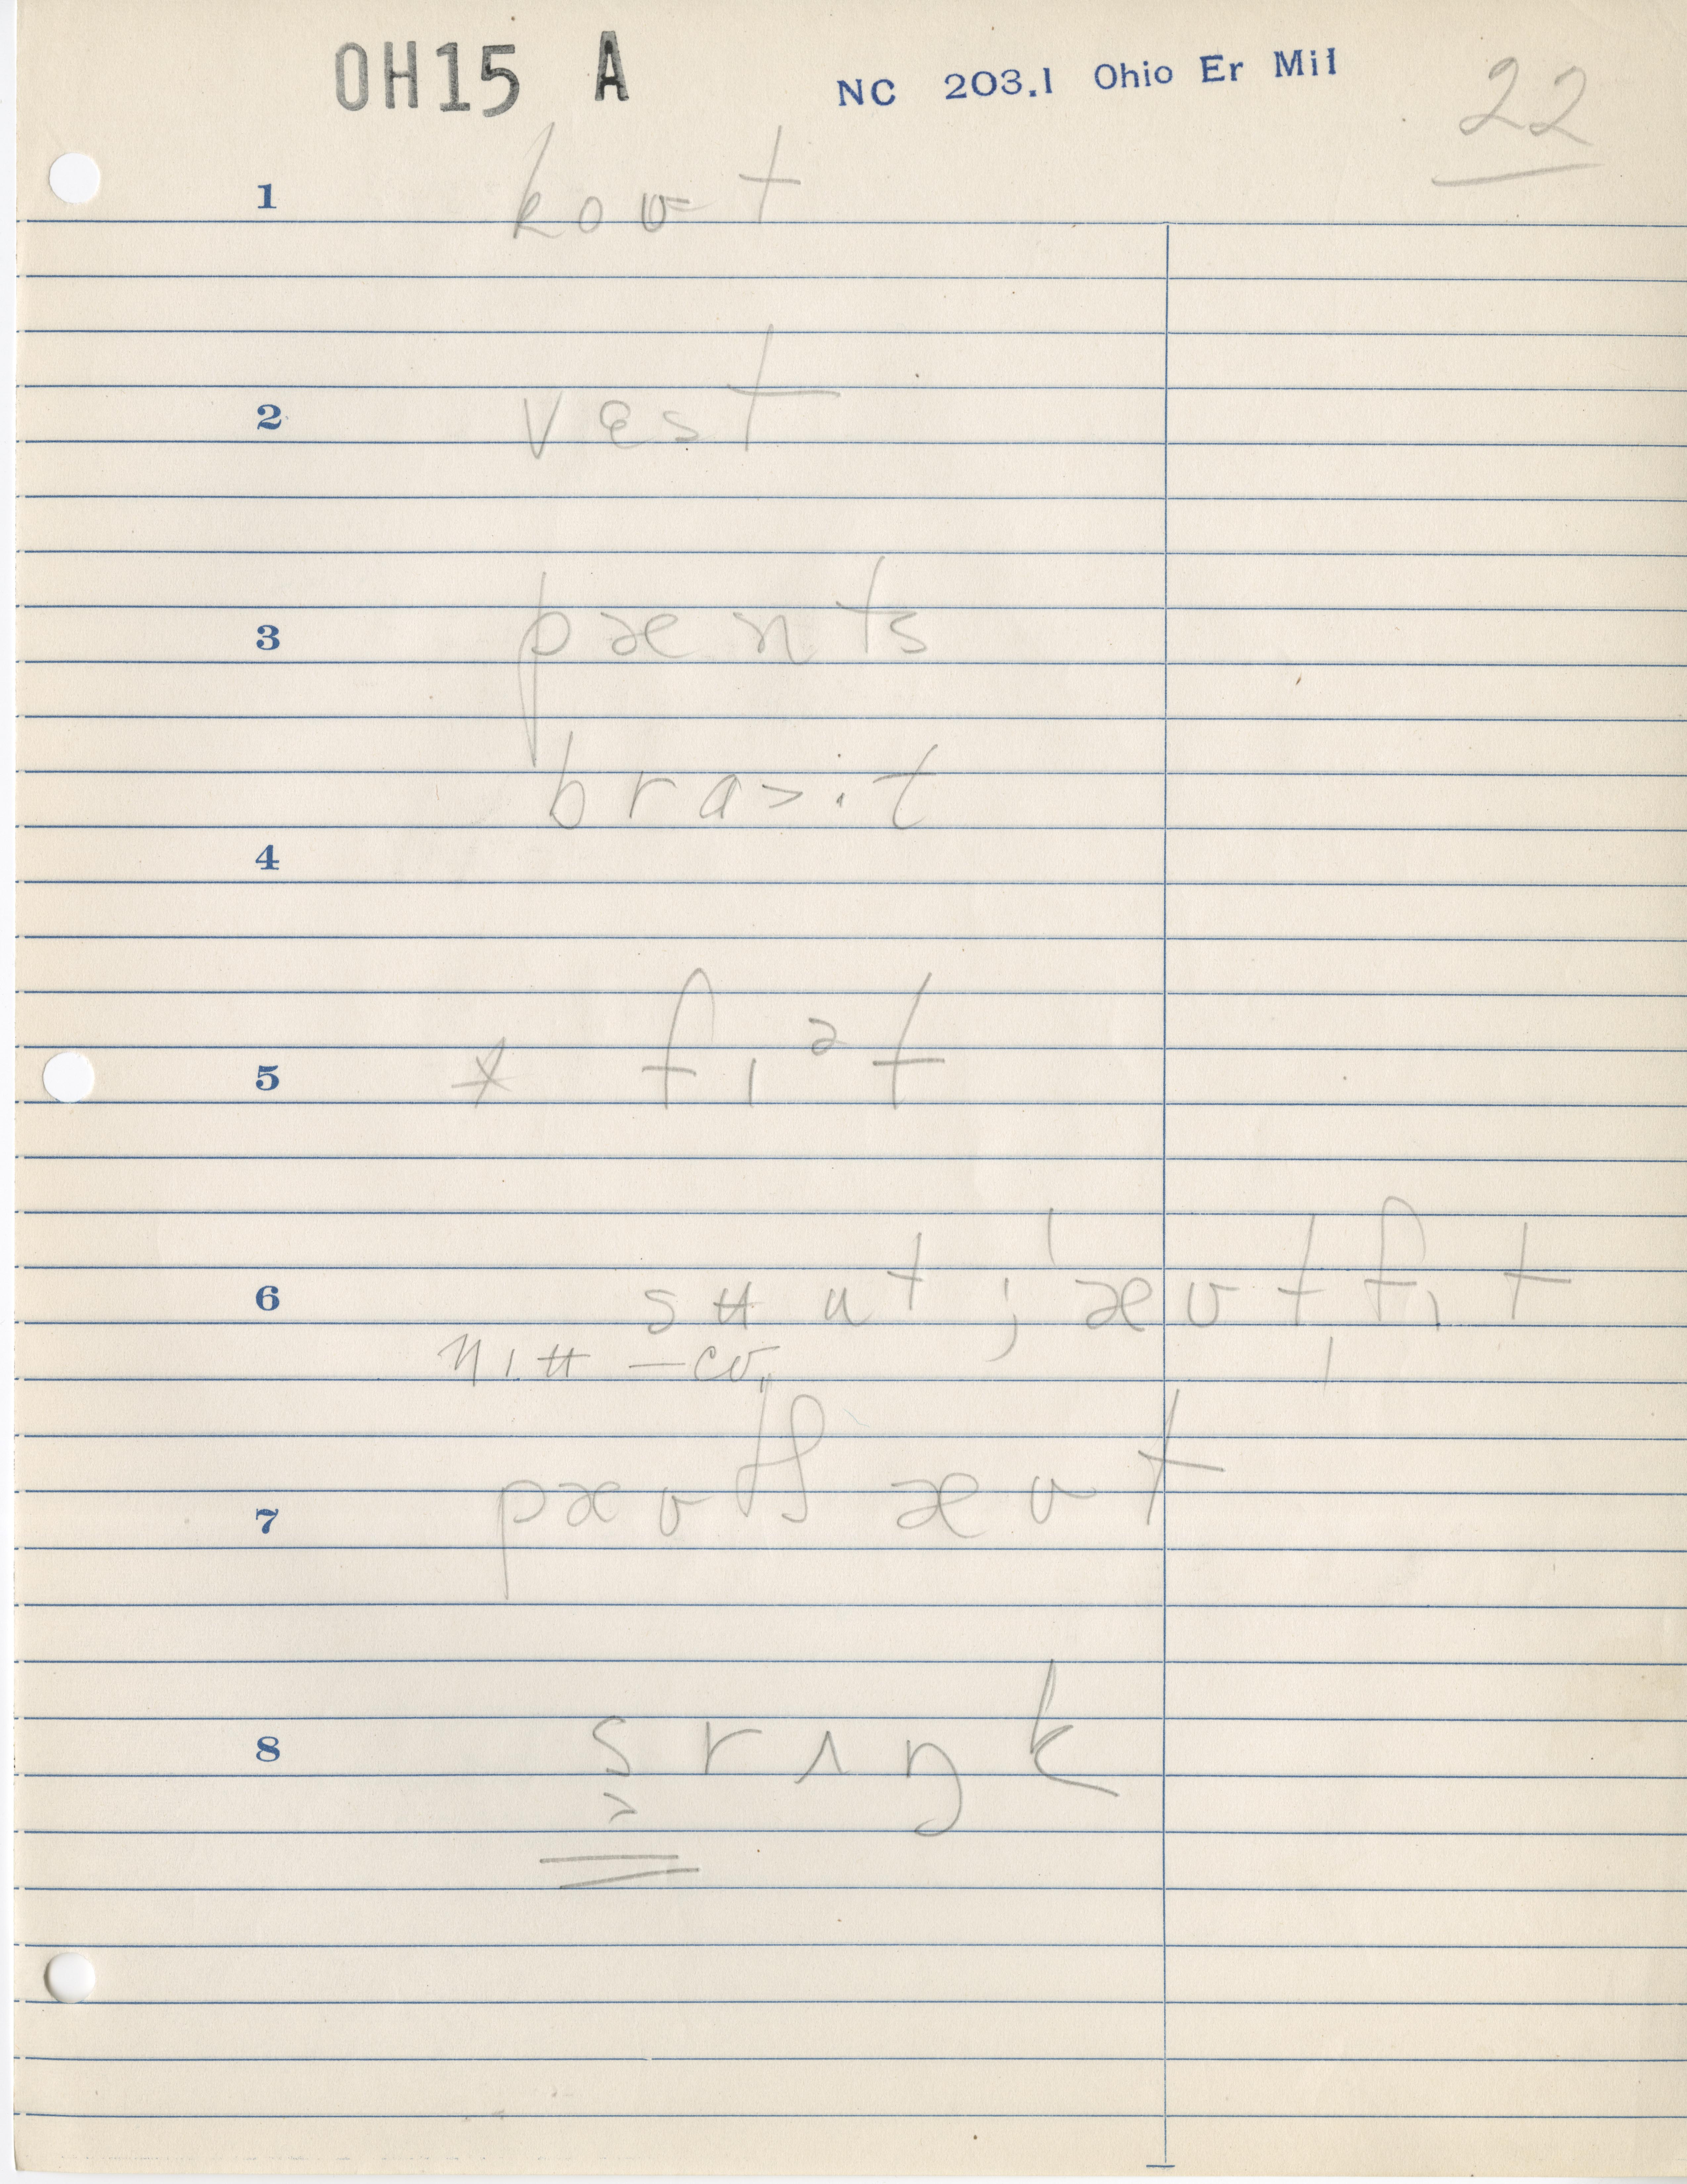 OH15 A NC 203.1 Ohio Er Mil 22
1 koʊt
2 vɛst
3 pænts
4
5 * fɪᵊt
6 sʉut ; ˈæʊtˌfɪt
7 pæʊtʃ æʊt
8 s̬rɪŋk